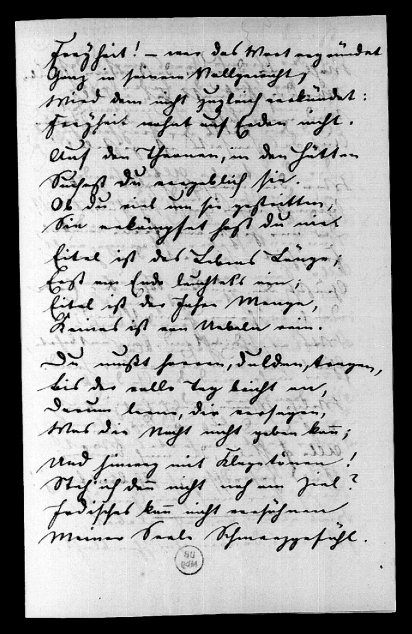 Freyheit! – wer das Wort ergründet
Ganz in seinem Vollgewicht,
Wird dem nicht zugleich verkündet:
Freyheit wohnt auf Erden nicht.
Auf den Thronen, in den Hütten
Suchest Du vergeblich sie.
Ob du viel um sie gestritten,
Sie erkämpfet hast du nie.
Eitel ist des Lebens Länge,
Erst am Ende
Eitel ist der Jahre Menge,
Keines ist von Uebeln rein.
Du mußt harren, dulden, tragen,
Bis der volle Tag bricht an,
Darum lerne, dir versagen,
Was die Nacht nicht geben kann;
Und hinweg mit Klagetönen!
Steh' ich denn nicht nah am Ziel?
Irdisches kann nicht versöhnen
Meiner Seele Schmerzgefühl.